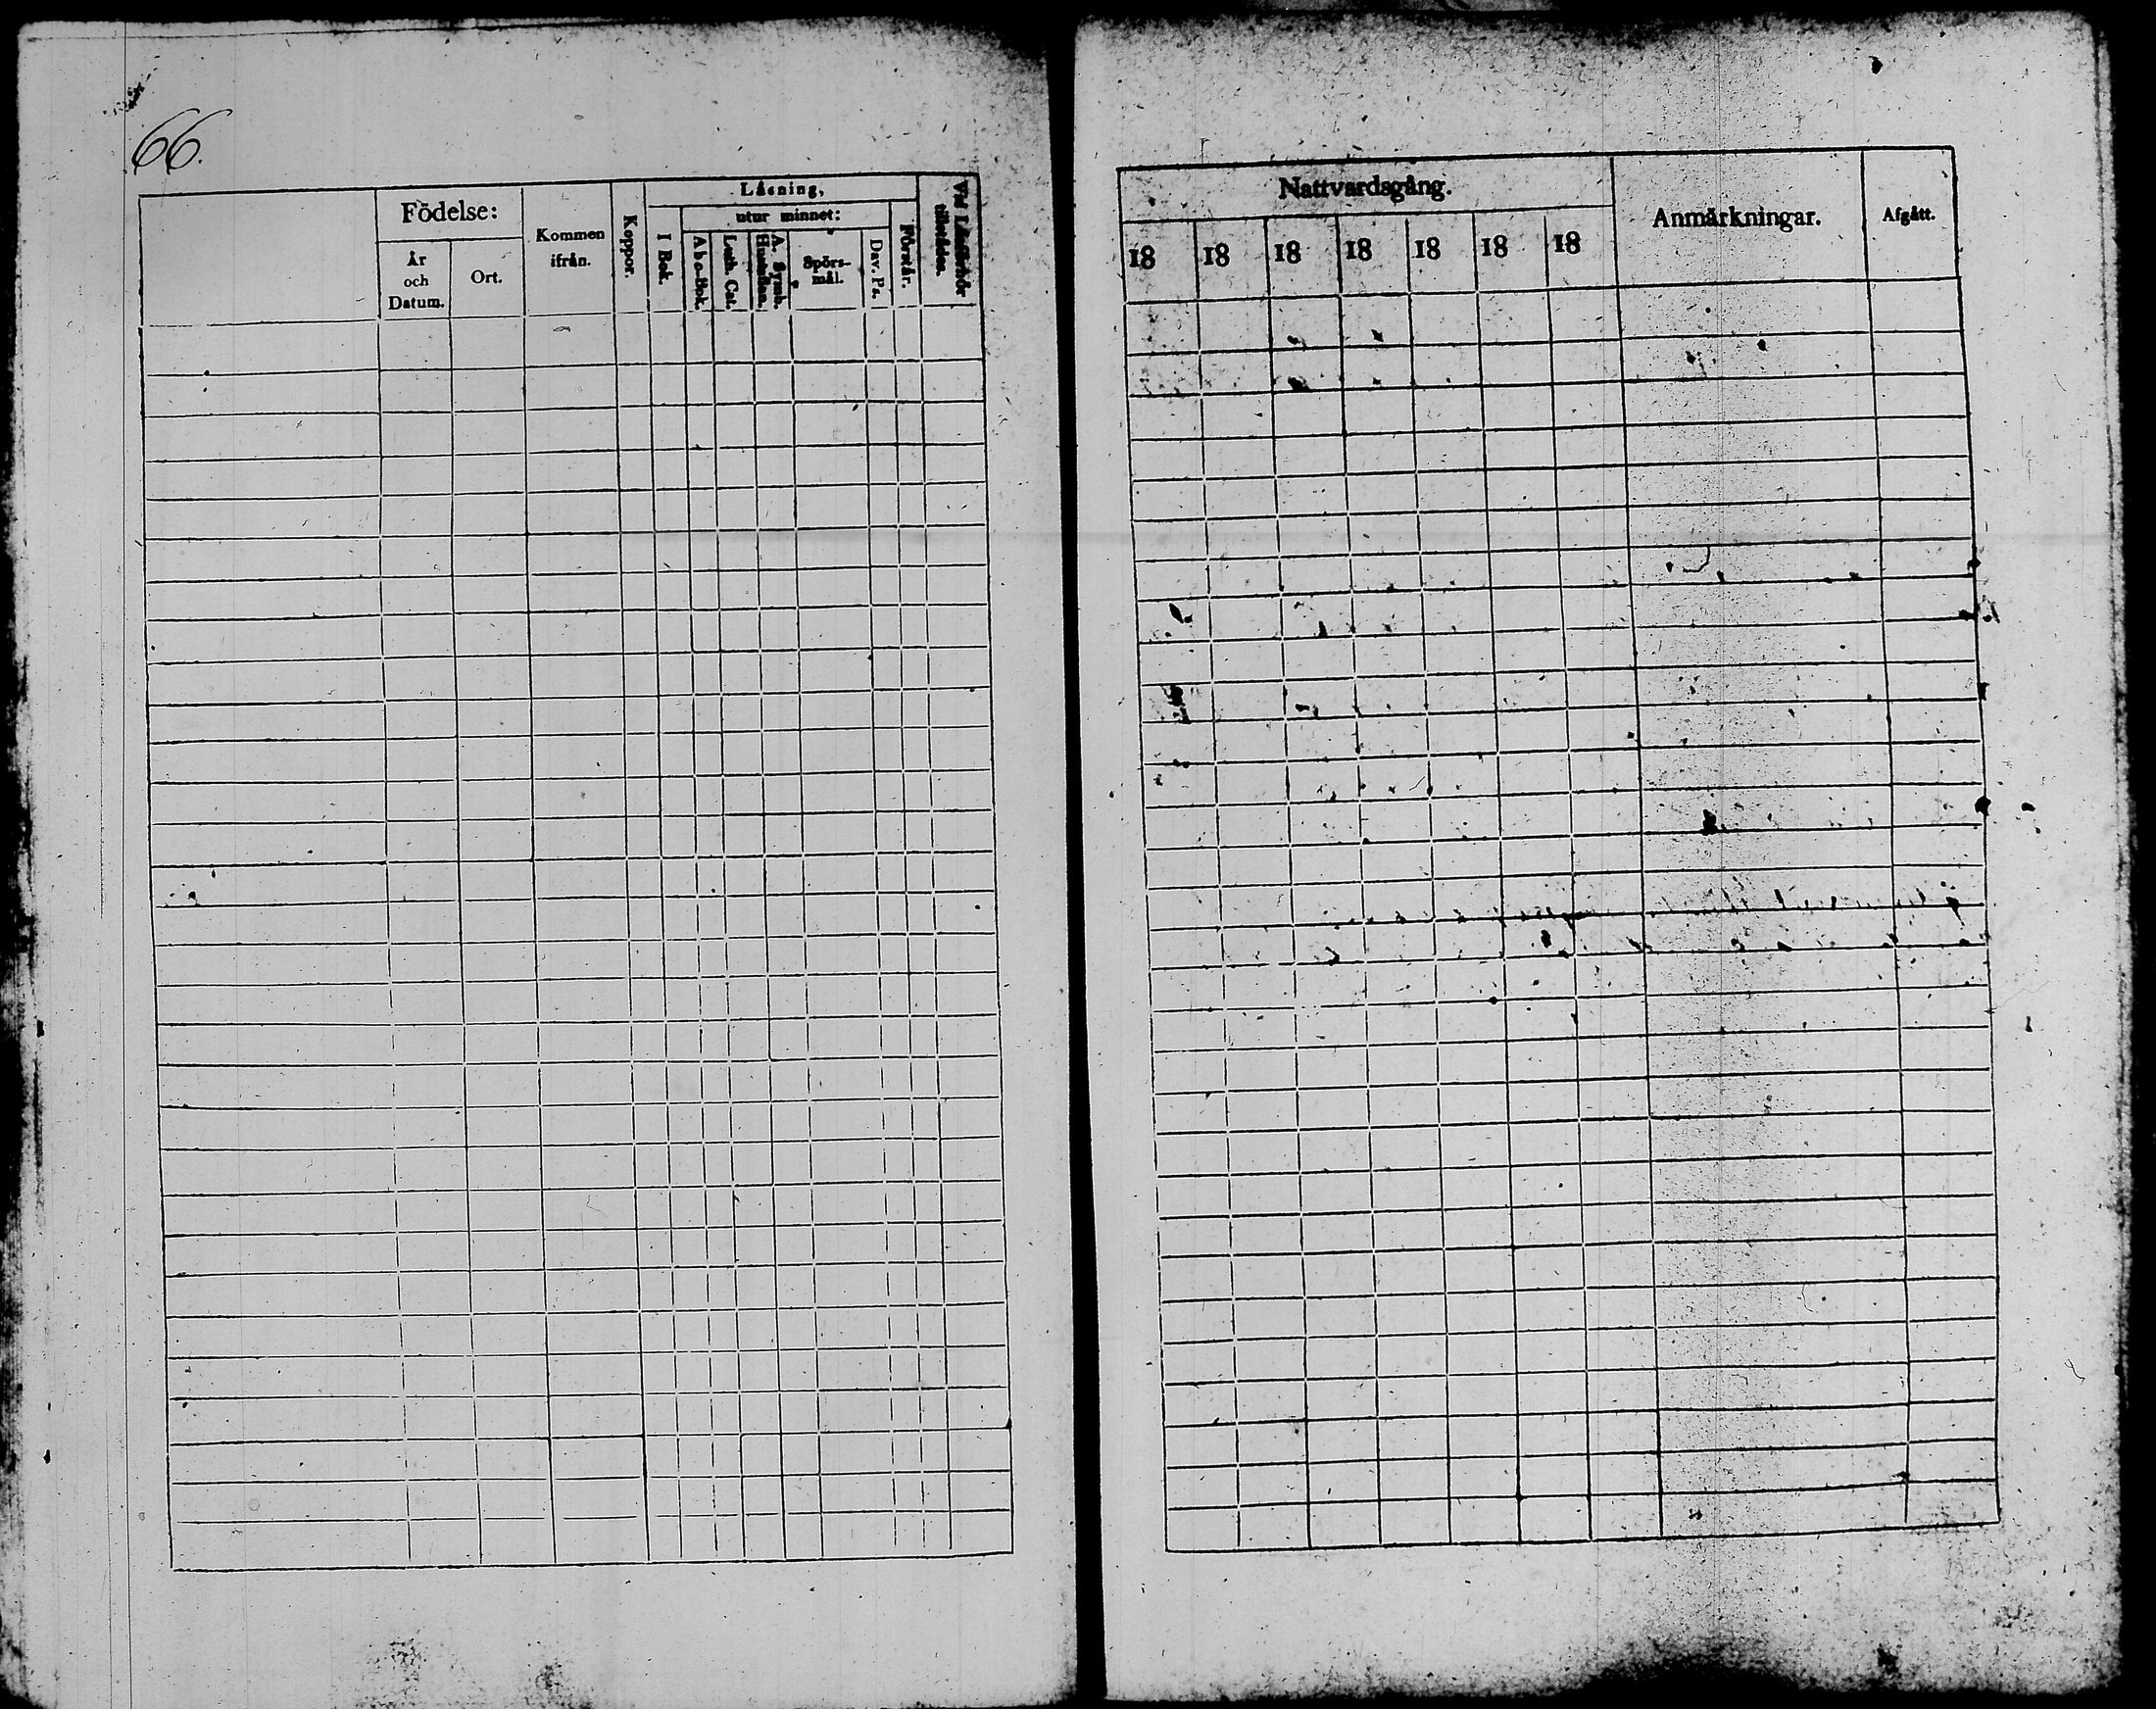 66.
Födelse:
År
och
Datum.
Ort.
Kommen
ifrån.
Koppor.
Läsning,
I Bok.
utur minnet:
Abc-Bok.
Luth. Cat.
A. Symb.
Hustaflan.
Spörs-
mål.
Dav. Ps.
Förstår.
Vid Läsförhör
tillstädes.
Nattvardsgång.
18 18 18 18 18 18 18
Anmärkningar.
Afgått.